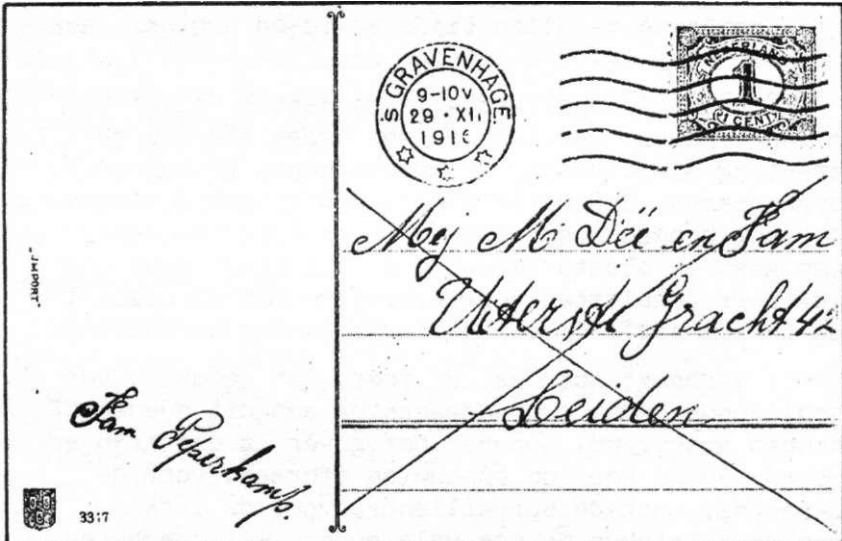 'S GRAVENHAGE
9-10V
29 · XII
191
NEDERLAND
1
CENT
Mej M Dee en Fam
Gracht 42
Leiden
"IMPORT"
Fam Peperkamp.
33